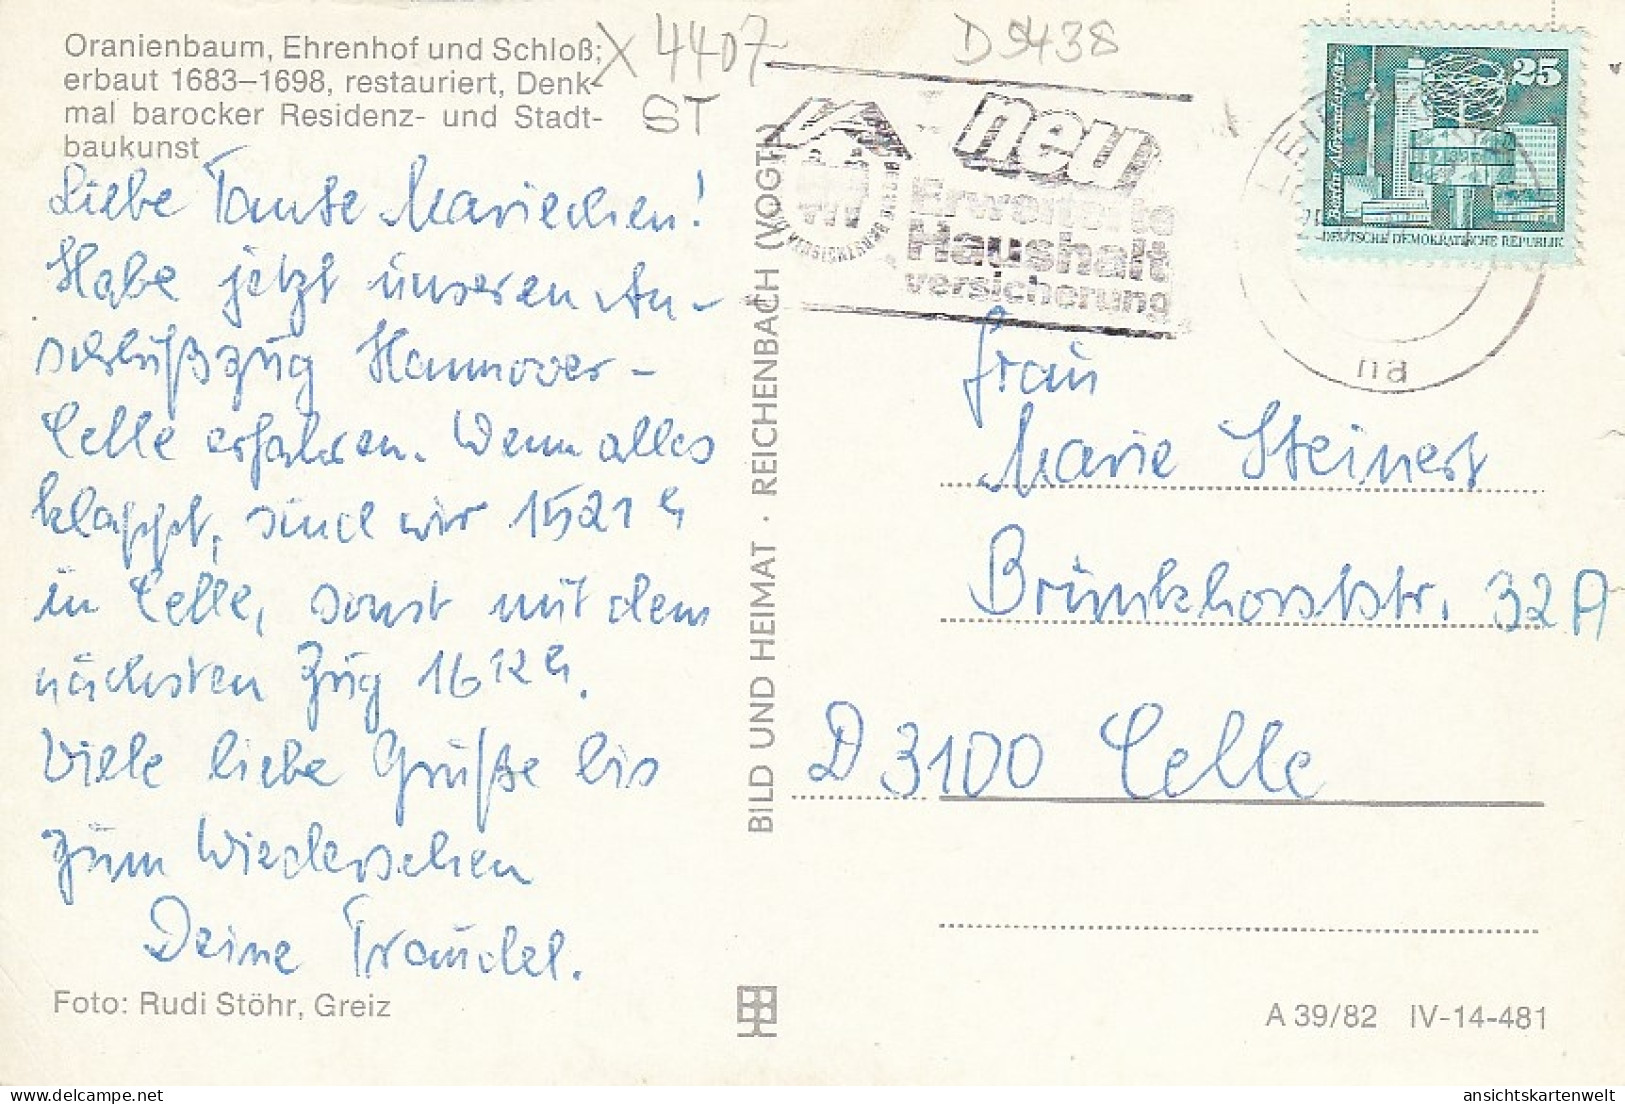 Oranienbaum, Ehrenhof und Schloß;
erbaut 1683–1698, restauriert, Denk-
mal barocker Residenz- und Stadt-
baukunst
X 4407
ST
D 9438
Liebe Tante Mariechen!
Habe jetzt unseren An-
schlußzug Hannover-
Celle erfahren. Wenn alles
klappt, sind wir 1521 h
in Celle, sonst mit dem
nächsten Zug 16 12 h.
Viele liebe Grüße bis
zum Wiedersehen
Deine Traudel.
Foto: Rudi Stöhr, Greiz
BILD UND HEIMAT · REICHENBACH (VOGTL)
neu
Erweiterte
Haushalt
versicherung
25
Berlin, Alexanderplatz
DEUTSCHE DEMOKRATISCHE REPUBLIK
na
Frau
Marie Steinert
Brünkhorststr. 32A
D 3100 Celle
A 39/82 IV-14-481
ansichtskartenwelt